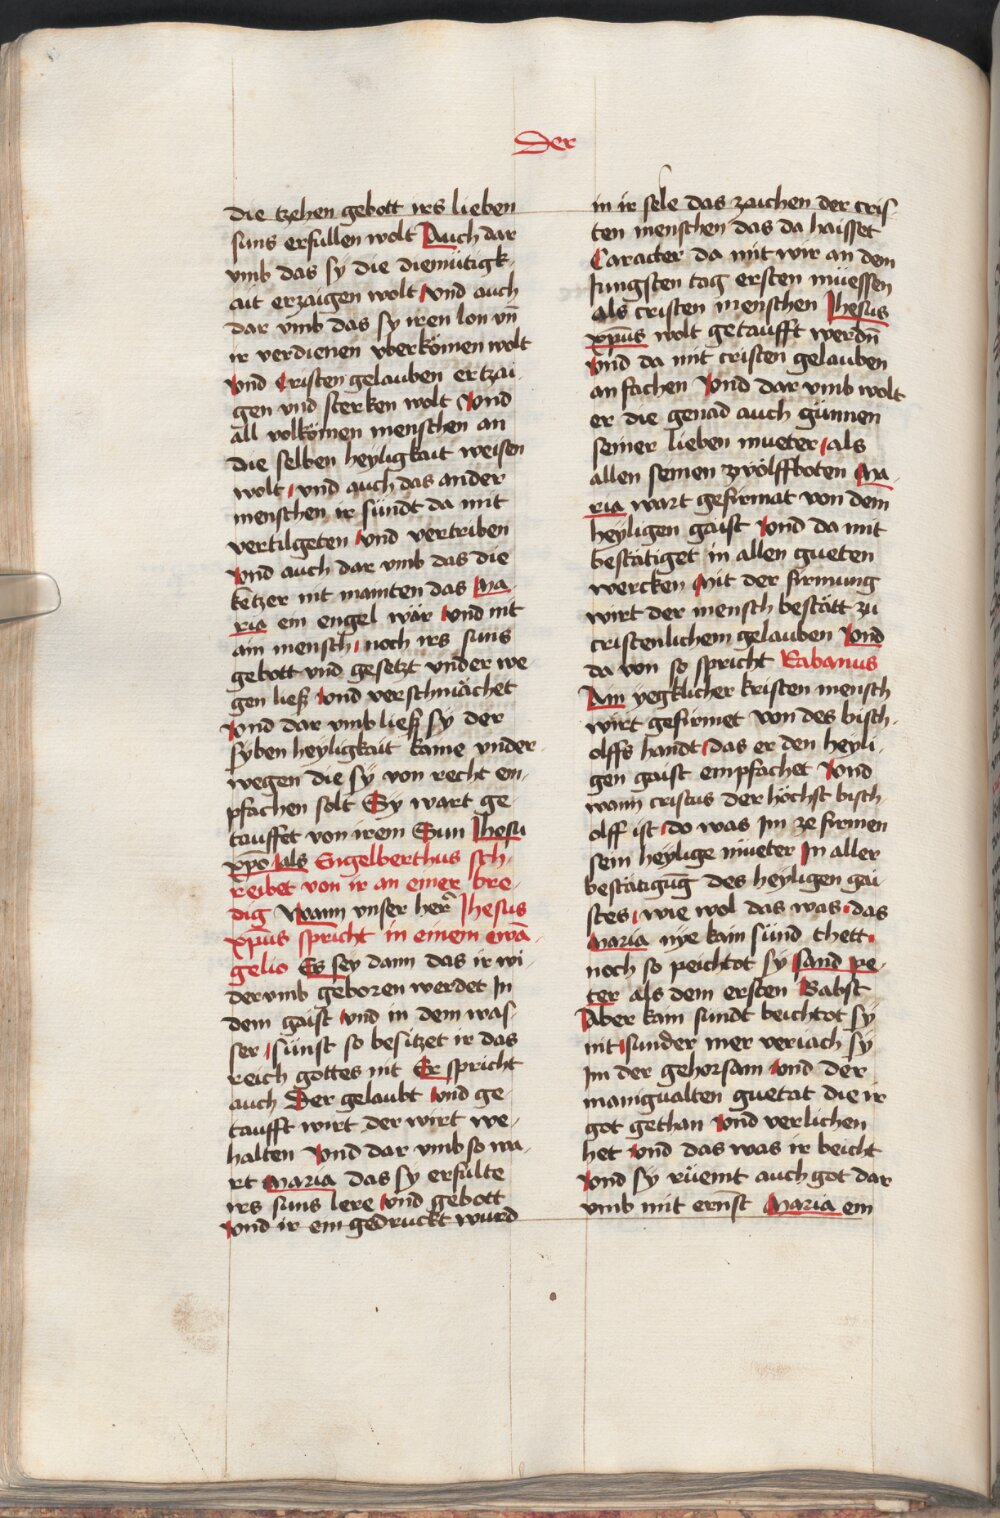 Der
die tzehen gebott irs lieben
suns erfullen wolt Auch dar
vmb das sy die diemütigk-
ait erzaigen wolt vnd auch
dar vmb das sy iren lon vn̄
ir verdienen vberkömen wolt
vnd Cristen gelauben ertzai-
gen vnd sterken wolt Vnd
all volkömen menschen an
die selben heyligkait weisen
wolt vnd auch das ander
menschen ir sündt da mit
vertilgeten vnd vertriben
vnd auch dar vmb das die
ketzer nit mainten das Ma-
ria ein engel wär vnd nit
ain mensch noch irs suns
gebott vnd gesetzt vnder we
gen ließ vnd verschmächet
vnd dar vmb ließ sy der
syben heyligkait kaine vnder-
wegen die sy von recht em-
pfachen solt Sy wart ge-
tauffet von irem Sun Jhesu
xp̄o als Sigelberthus sch-
reibet von ir an einer bre-
dig Wann vnser her̄ Jhesus
xp̄us spricht in einem ewā-
gelio Es sey dann das ir wi-
dervmb geboren werdet In
dem gaist vnd in dem was-
ser sünst so besitzet ir das
reich gottes nit Er spricht
auch Der gelaubt vnd ge-
taufft wirt der wirt we-
halten Vnd dar vmb so wa-
rt Maria das sy erfülte
irs suns lere vnd gebott
vnd ir ein gedruckt wurd
in ir sele das zaichen der cris-
ten menschen das da haisset
Caracter da mit wir an dem
Jungsten tag ersten müessen
als cristen menschen Jhesus
xp̄us wolt getaufft werdn̄
vnd da mit cristen gelauben
an fachen Vnd dar vmb wolt
er die genad auch günnen
seiner lieben mueter als
allen seinen zwölffboten Ma-
ria wart gefirmat von dem
heyligen gaist Vnd da mit
bestätiget in allen gueten
wercken Mit der firmung
wirt der mensch bestätt zu
cristenlichem gelauben Vnd
da von so spricht Rabanus
Ain yegklicher kristen mensch
wirt gefirmet von des bisch-
olffs handt das er den heyli-
gen gaist empfachet Vnd
wann cristus der höchst bisch-
olff ist do was Im ze firmen
sein heylige mueter In aller
bestätigūg des heyligen gai
stes wie wol das was das
Maria nye kain sünd thett
noch so peichtot sy sand pe-
ter als dem ersten Babst
Aber kain sundt beichtot sy
nit sunder mer veriach sy
im der gehorsam vnd der
manigualten guetat die ir
got gethan Vnd verlichen
het vnd das was ir beicht
vnd sy rüemt auch got dar
vmb mit ernst Maria em